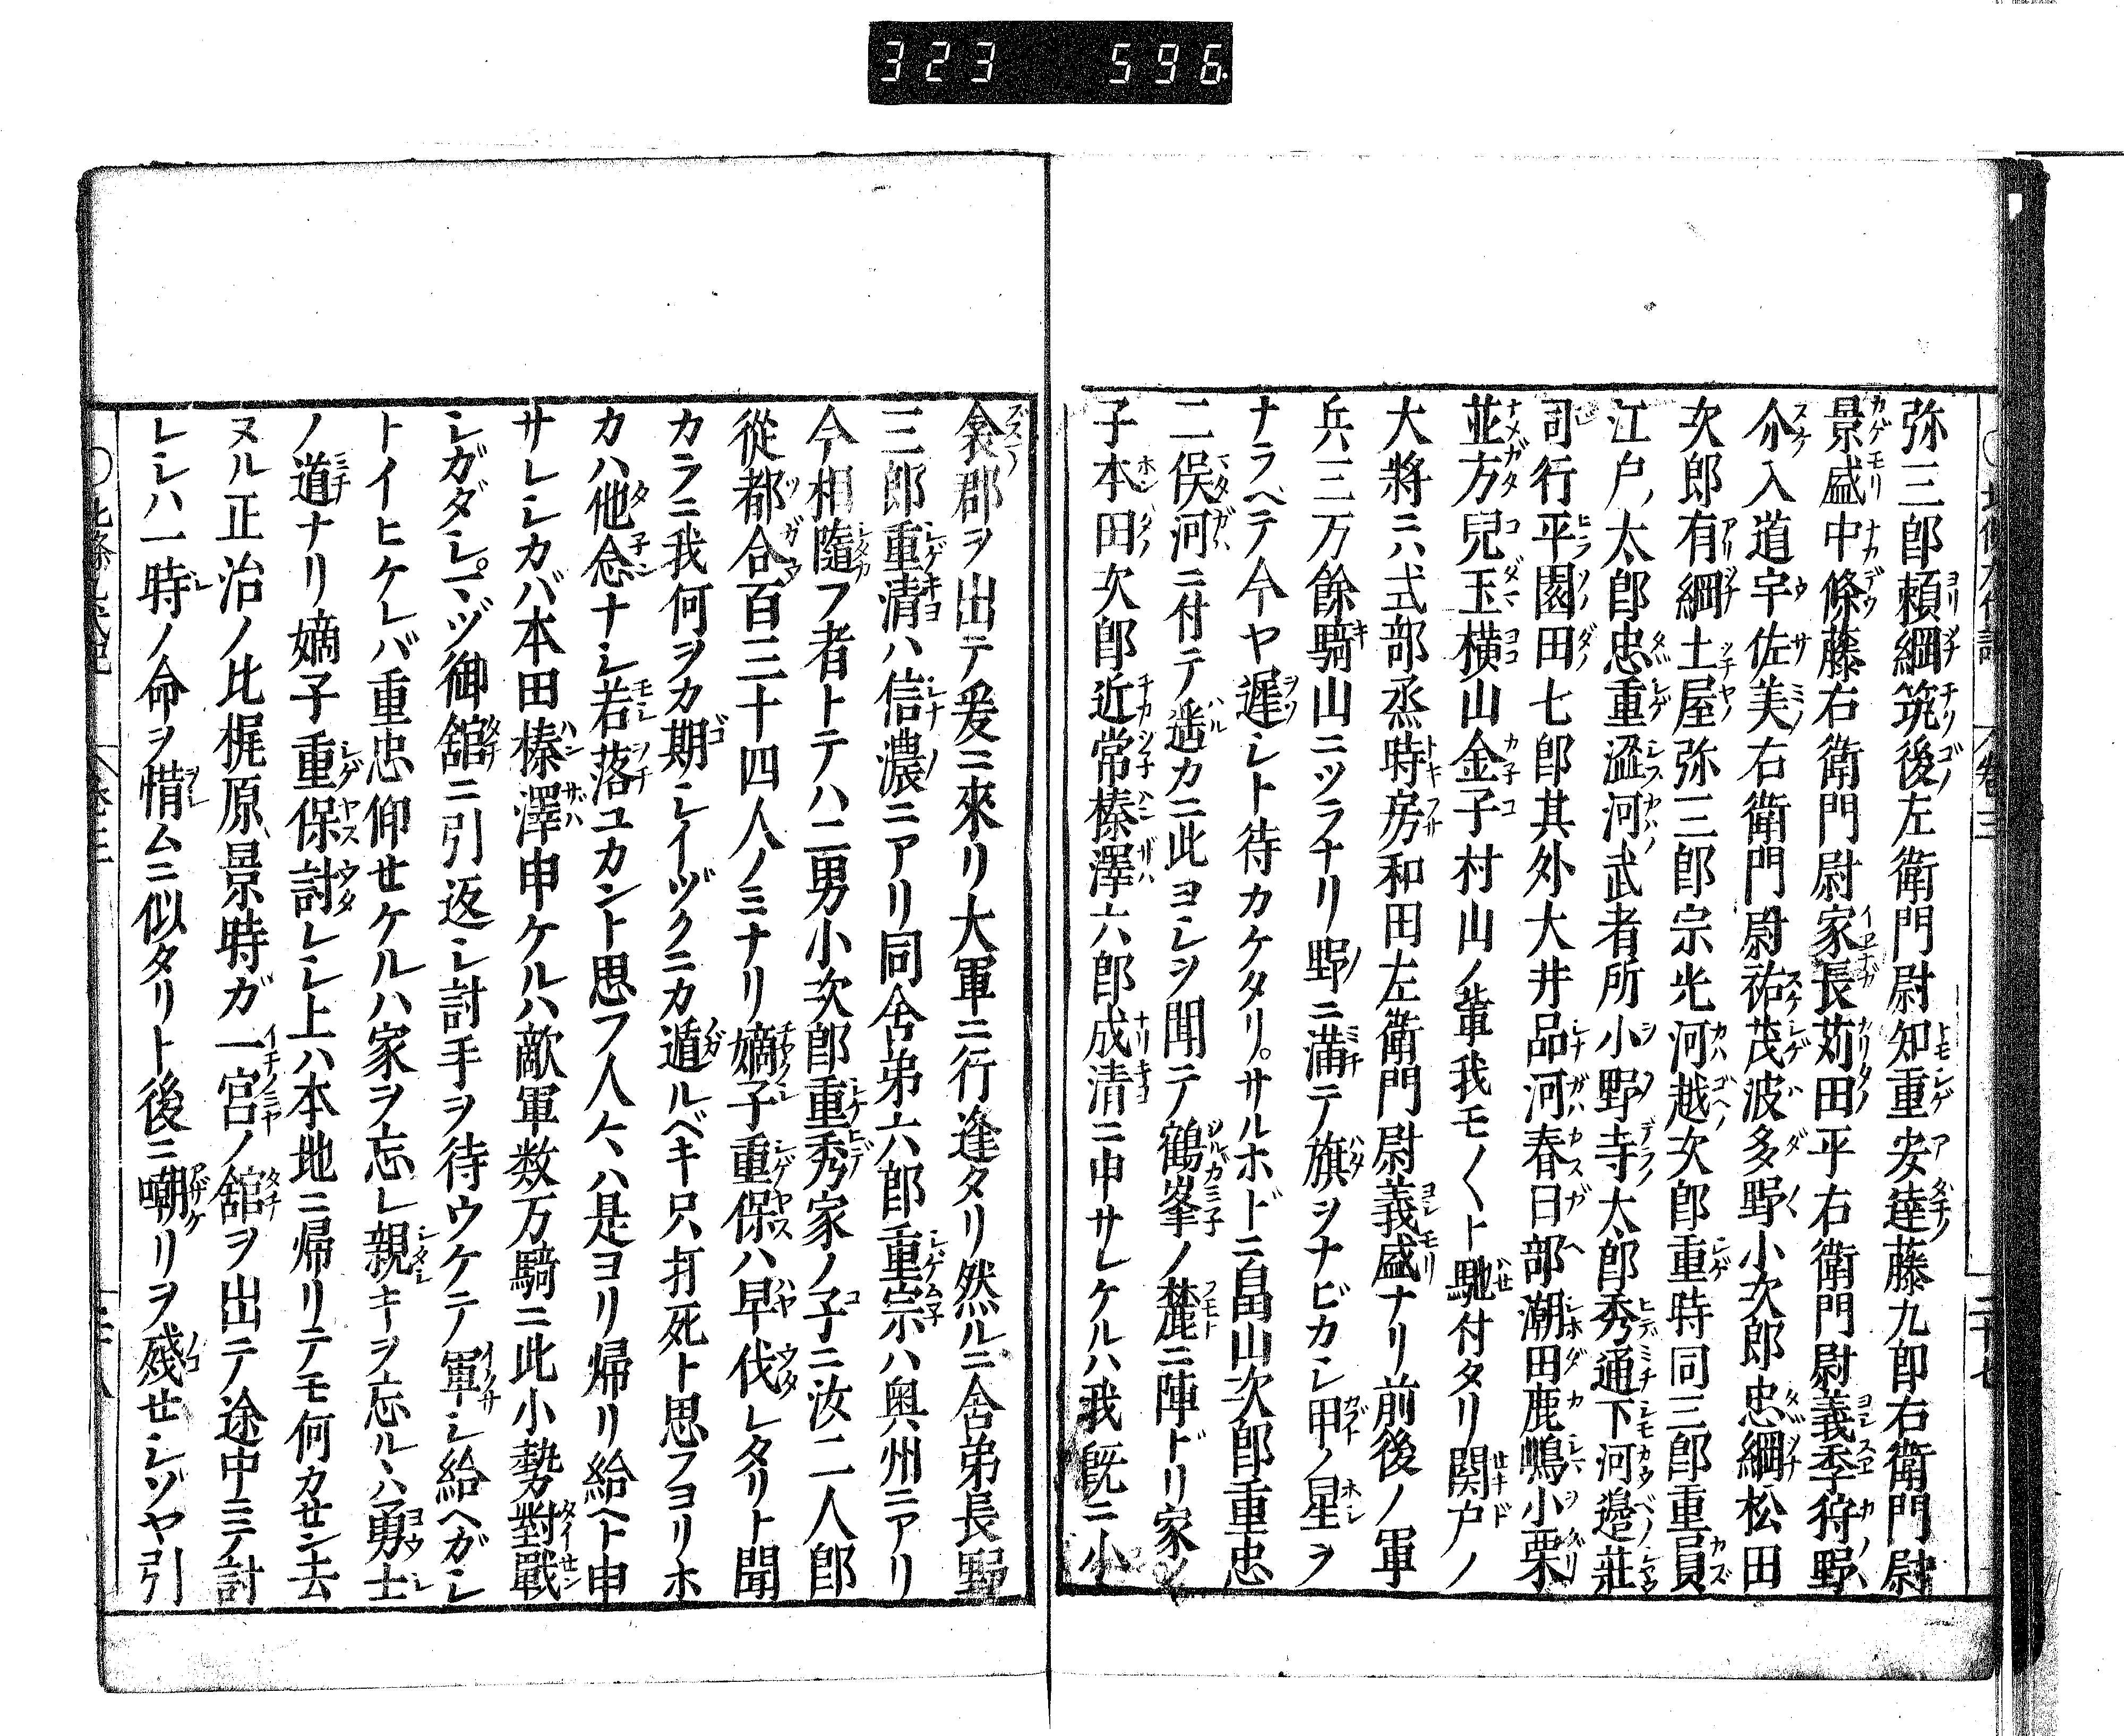 323 596
弥三郎頼綱筑後左衛門尉知重安達藤九郎右衛門尉
景盛中條藤右衛門尉家長苅田平右衛門尉義季狩野
介入道宇佐美右衛門尉祐茂波多野小次郎忠綱松田
次郎有綱土屋弥三郎宗光河越次郎重時同三郎重員
江戸ノ太郎忠重澁河武者所小野寺太郎秀通下河邉莊
司行平園田七郎其外大井品河春日部潮田鹿嶋小栗
並方兒玉横山金子村山ノ輩我モ〱ト馳付タリ関戸ノ
大將ニハ式部烝時房和田左衛門尉義盛ナリ前後ノ軍
兵三万餘騎山ニツラナリ野ニ満テ旗ヲナビカシ甲ノ星ヲ
ナラヘテ今ヤ遲シト待カケタリ。サルホドニ畠山次郎重忠
二俣河ニ付テ遥カニ此ヨシヲ聞テ鶴峯ノ麓ニ陣ドリ家ノ
子本田次郎近常榛澤六郎成清ニ申サレケルハ我既ニ小
衾郡ヲ出テ爰ニ來リ大軍ニ行逢タリ然ルニ舎弟長野
三郎重清ハ信濃ニアリ同舎弟六郎重宗ハ奥州ニアリ
今相隨フ者トテハ二男小次郎重秀家ノ子ニ汝二人郎
從都合百三十四人ノミナリ嫡子重保ハ早伐レタリト聞
カラニ我何ヲカ期シイヅクニカ遁ルベキ只打死ト思フヨリホ
カハ他念ナシ若落ユカント思フ人々ハ是ヨリ帰リ給ヘト申
サレシカバ本田榛澤申ケルハ敵軍数万騎ニ此小勢對戰
シガダシ。マヅ御舘ニ引返シ討手ヲ待ウケテ軍シ給ヘガシ
トイヒケレバ重忠仰せケルハ家ヲ忘レ親キヲ忘ルヽハ勇士
ノ道ナリ嫡子重保討レシ上ハ本地ニ帰リテモ何カせン去
ヌル正治ノ比梶原景時ガ一宮ノ舘ヲ出テ途中ニテ討
レシハ一時ノ命ヲ惜ムニ似タリト後ニ嘲リヲ殘せシゾヤ引